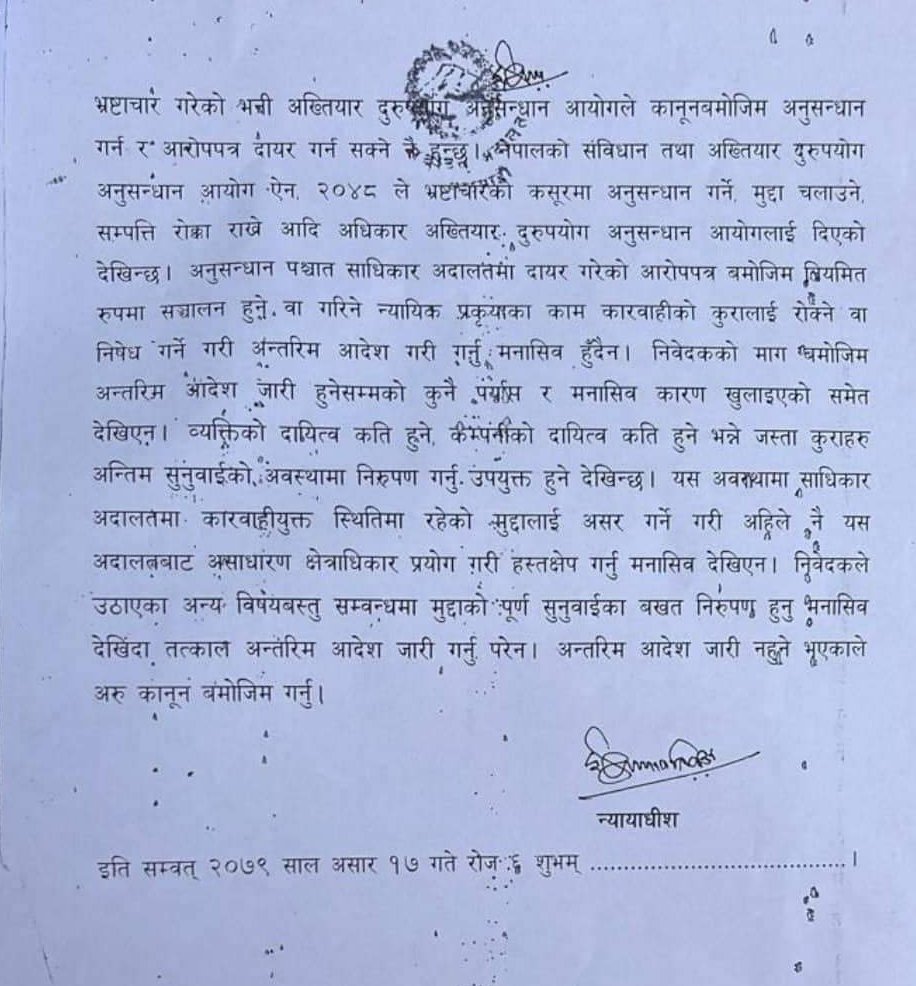 भ्रष्टाचार गरेको भन्नी अख्तियार दुरुपयोग अनुसन्धान आयोगले कानूनबमोजिम अनुसन्धान
गर्न र आरोपपत्र दायर गर्न सक्ने नै हुन्छ। नेपालको संविधान तथा अख्तियार दुरुपयोग
अनुसन्धान आयोग ऐन, २०४८ ले भ्रष्टाचारको कसूरमा अनुसन्धान गर्ने, मुद्दा चलाउने,
सम्पत्ति रोक्का राख्ने आदि अधिकार अख्तियार दुरुपयोग अनुसन्धान आयोगलाई दिएको
देखिन्छ। अनुसन्धान पश्चात साधिकार अदालतमा दायर गरेको आरोपपत्र बमोजिम नियमित
रुपमा सञ्चालन हुने वा गरिने न्यायिक प्रकृयाका काम कारवाहीको कुरालाई रोक्ने वा
निषेध गर्ने गरी अन्तरिम आदेश गरी गर्नु मनासिव हुँदैन। निवेदकको माग बमोजिम
अन्तरिम आदेश जारी हुनेसम्मको कुनै पर्याप्त र मनासिव कारण खुलाइएको समेत
देखिएन। व्यक्तिको दायित्व कति हुने, कम्पनीको दायित्व कति हुने भन्ने जस्ता कुराहरु
अन्तिम सुनुवाईको अवस्थामा निरुपण गर्नु उपयुक्त हुने देखिन्छ। यस अवस्थामा साधिकार
अदालतमा कारवाहीयुक्त स्थितिमा रहेको मुद्दालाई असर गर्ने गरी अहिले नै यस
अदालतबाट असाधारण क्षेत्राधिकार प्रयोग गरी हस्तक्षेप गर्नु मनासिव देखिएन। निवेदकले
उठाएका अन्य विषयबस्तु सम्वन्धमा मुद्दाको पूर्ण सुनुवाईका बखत निरुपण हुनु मनासिव
देखिंदा तत्काल अन्तरिम आदेश जारी गर्नु परेन। अन्तरिम आदेश जारी नहुने भएकाले
अरु कानून बमोजिम गर्नु।
न्यायाधीश
इति सम्वत् २०७९ साल असार १७ गते रोज ६ शुभम् .......................................।